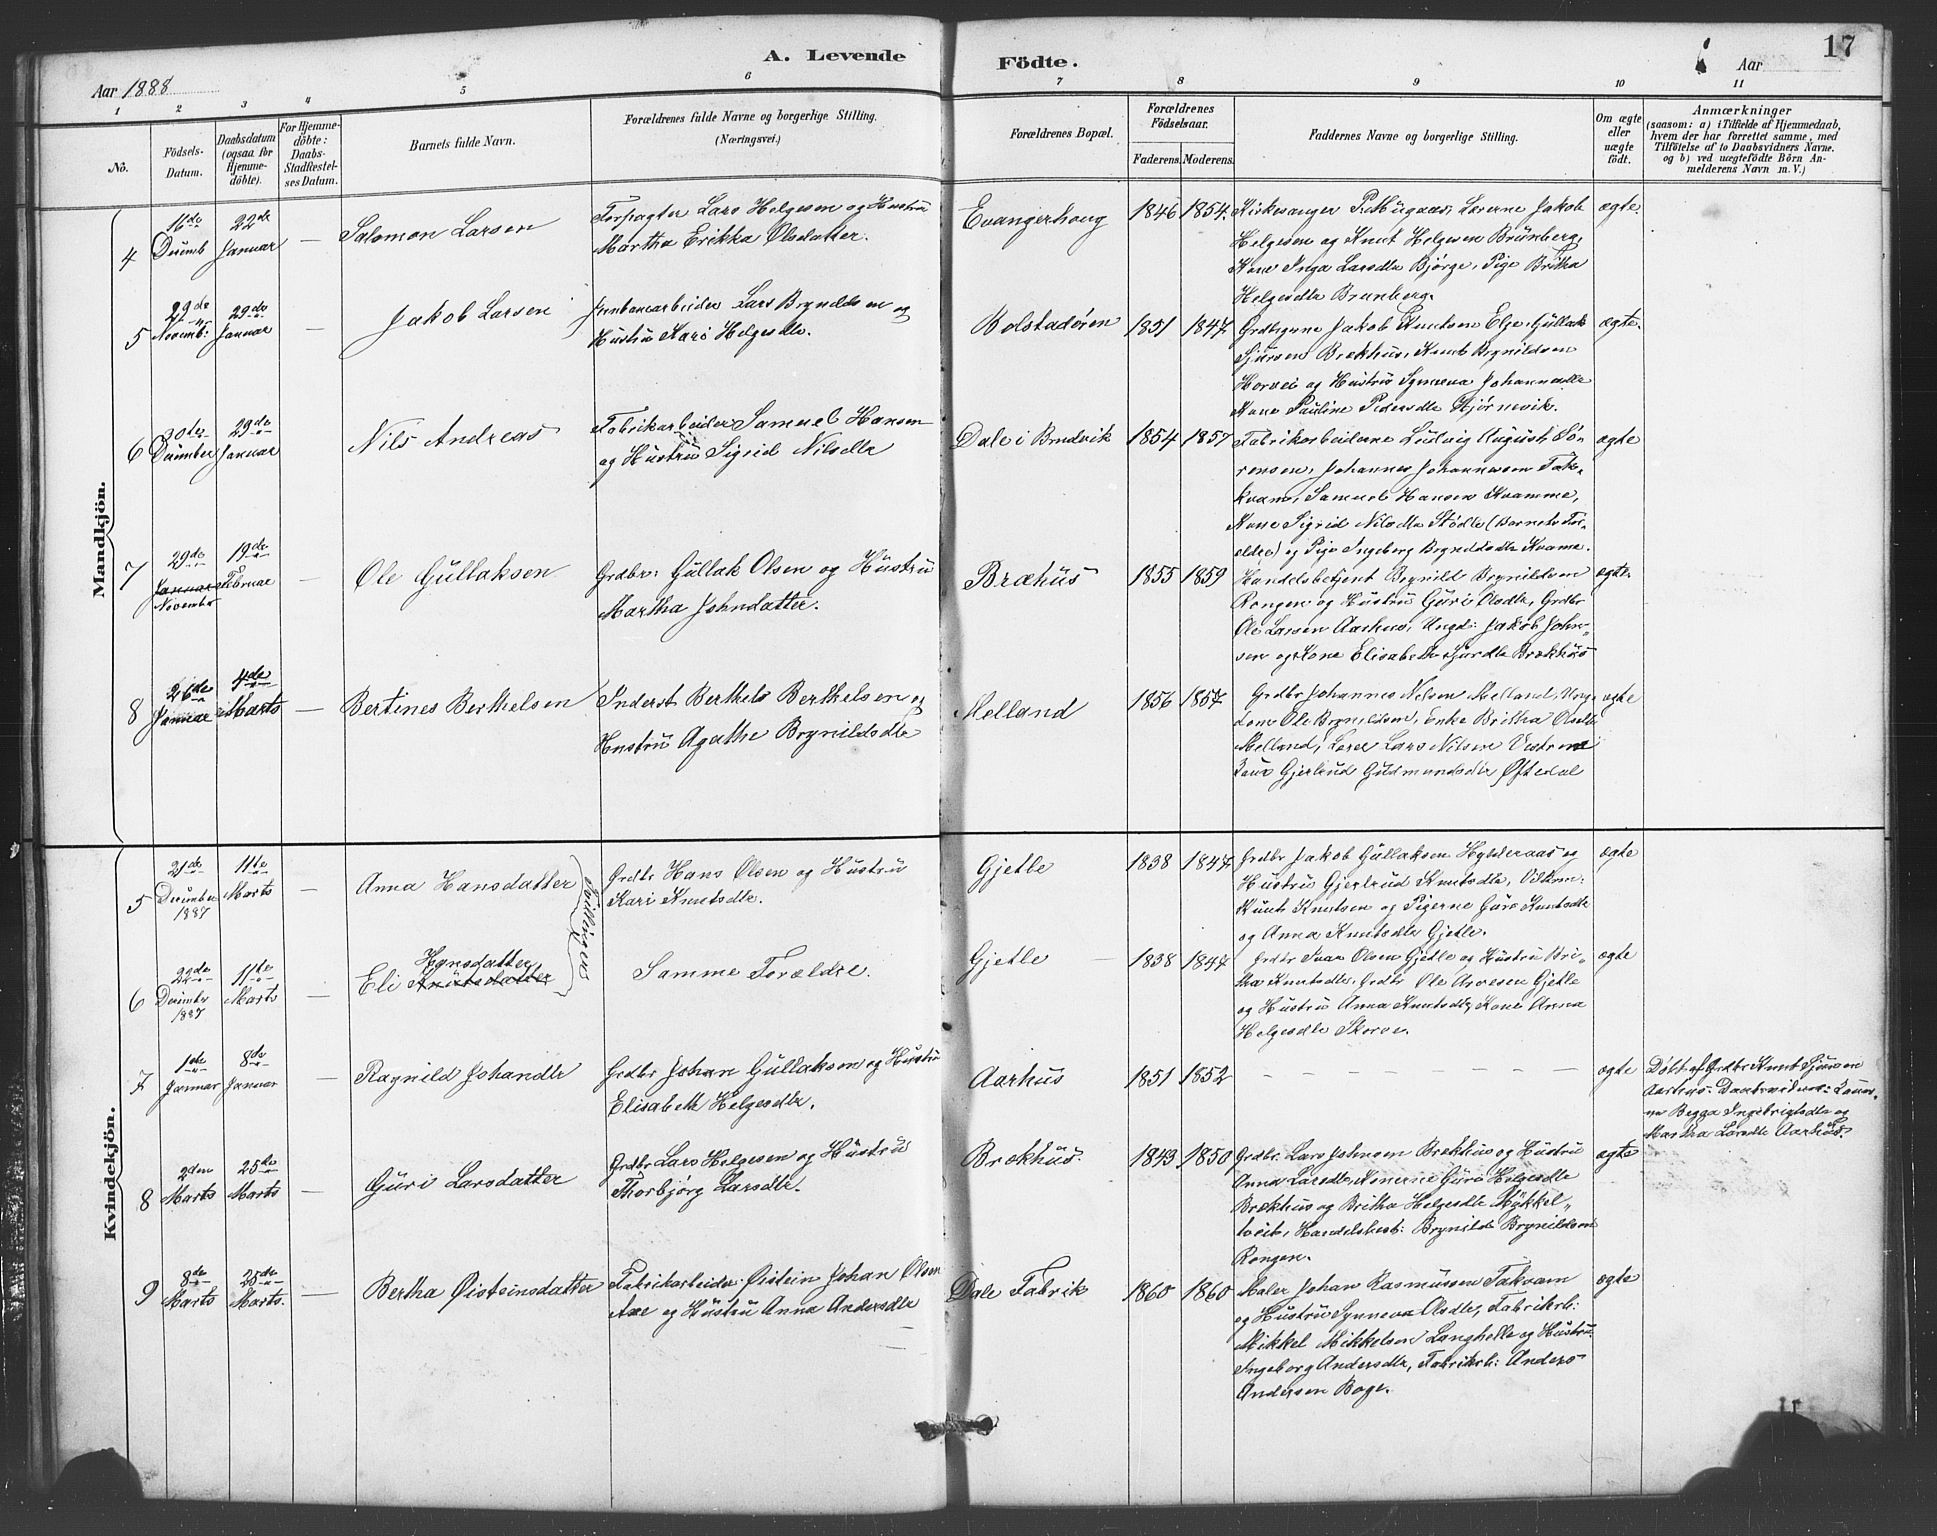 A. Levende Födte.
17
Aar 1888
Aar
1 2 3 4 5 6 7 8 9 10 11
No.
Födsels-
Datum.
Daabsdatum
(ogsaa for
Hjemme-
döbte).
For Hjemme-
döbte:
Daabs-
Stadfæstel-
ses Datum.
Barnets fulde Navn.
Forældrenes fulde Navne og borgerlige Stilling.
(Næringsvei.)
Forældrenes Bopæl.
Forældrenes
Födselsaar.
Faderens. Moderens.
Faddernes Navne og borgerlige Stilling.
Om ægte
eller
uægte
födt.
Anmærkninger
(saasom: a) i Tilfælde af Hjemmedaab,
hvem der har forrettet samme, med
Tilföielse af to Daabsvidners Navne.
og b) ved uægtefödte Börn An-
melderens Navn m. V.)
Mandkjön.
4
16de
Decemb
22de
Januar
—
Salomon Larsen
Forpagter Lars Helgesen og Hustru
Martha Erikka Olsdatter.
Evangerhoug
1846 1854
Kirkesanger P. Mugaas, Lærerne Jakob
Helgesen og Knut Helgesen Brünberg,
Kone Inga Larsdtr Bjørge, Pige Britha
Helgesdtr Brunberg.
ægte
5
29de
Novemb:
29de
Januar
—
Jakob Larsen
Jernbanearbeider Lars Brynildsen og
Hustru Kari Helgesdtr.
Bolstadøren
1851 1847
Grdbrgne Jakob Knutsen Elje, Gullak
Sjursen Brækhus, Knut Brynildsen
Horvei og Hustru Synneva Johannesdtr
Kone Pauline Pedersdtr Hjørnevik.
ægte.
6
30te
December
29de
Januar
Nils Andreas
Fabrikarbeider Samuel Hansen
og Hustru Sigrid Nilsdtr
Dale i Bruvik
1854 1857
Fabrikarbeiderne Ludvig August Sö-
rensen, Johannes Johannesen Tak-
kvam, Samuel Hansen Kvamme,
Kone Sigrid Nilsdtr Stödle (Barnets For-
eldre) og Pige Ingeborg Brynildsdtr Kvame.
ægte
7
29de
Januar
November
19de
Februar
—
Ole Gullaksen
Grdbr: Gullak Olsen og Hustru
Martha Johndatter.
Bræhüs
1855 1859
Handelsbetjent Brynild Brynildsen
Rongen og Hustru Guri Olsdtr, Grdbr
Ole Larsen Aarhus, Ungd: Jakob John-
sen og Kone Elisabeth Sjurdtr Brækhüs
ægte.
8
26de
Januar
4de
Marts
—
Bertines Berthelsen
Inderst Berthels Berthelsen og
Hustru Agathe Brynildsdtr
Melland
1856 1857
Grdbr Johannes Nilsen Melland, Ung-
dom Ole Brynildsen, Enke Britha Olsdtr
Melland, Lærer Lars Nilsen Vestrem
Kone Gjertrud Guldmundsdtr Øftedal
ægte
Kvindekjön.
5
21de
December
1887
11te
Marts
—
Anna Hansdatter
Tvillinger
Grdbr Hans Olsen og Hustru
Kari Knutsdtr.
Gjetle
1838 1847
Grdbr Jakob Gullaksen Hylderaas og
Hustru Gjertrud Knutsdtr,
Knut Knutsen og Pigerne Guro Knutsdtr
og Anna Knutsdtr Gjetle.
ægte
6
22de
December
1887
11te
Marts
—
Hansdatter
Eli Knutsdatter
Samme Forældre.
Gjetle —
1838 1847
Grdbr Ivar Olsen Gjetle og Hustru Bri-
tha Knutsdtr, Grdbr Ole Arvesen Gjetle
og Hustru Anna Knutsdtr, Kone Anna
Helgesdtr Skorve.
ægte
7
1ste
Januar
8de
Januar
—
Ragnild Johandtr
Grdbr Johan Gullaksen og Hustru
Elisabeth Helgesdtr.
Aarhus
1851 1852
— — — — — — — —
ægte
Döbt af Grdbr Knut Sjursen
Aarhus. Daabsvidner: Koner-
ne Begga Ingebrigtsdtr og
Martha Larsdtr Aarhüs.
8
2den
Marts
25de
Marts
—
Guri Larsdatter
Grdbr Lars Helgesen og Hustru
Thorbjørg Larsdtr.
Brækhüs.
1843 1850
Grdbr. Lars Johnsen Brækhus og Hustru
Anna Larsdtr, Konerne Guro Helgesdtr
Brækhus og Britha Helgesdtr Mykkel-
tveit, Handelsbest: Brynild Brynildsen
Rongen.
ægte
9
8de
Marts
25de
Marts.
—
Bertha Øisteinsdatter
Fabrikarbeider Øistein Johan Olsen
Axe og Hustru Anna Andersdtr
Dale Fabrik
1860 1860
Maler Johan Rasmussen Takvam
og Hustru Synneva Olsdtr, Fabrikarb:
Mikkel Mikkelsen Langhelle og Hustru
Ingeborg Andersdtr, Fabrikarb: Anders
Andersen Boge.
ægte